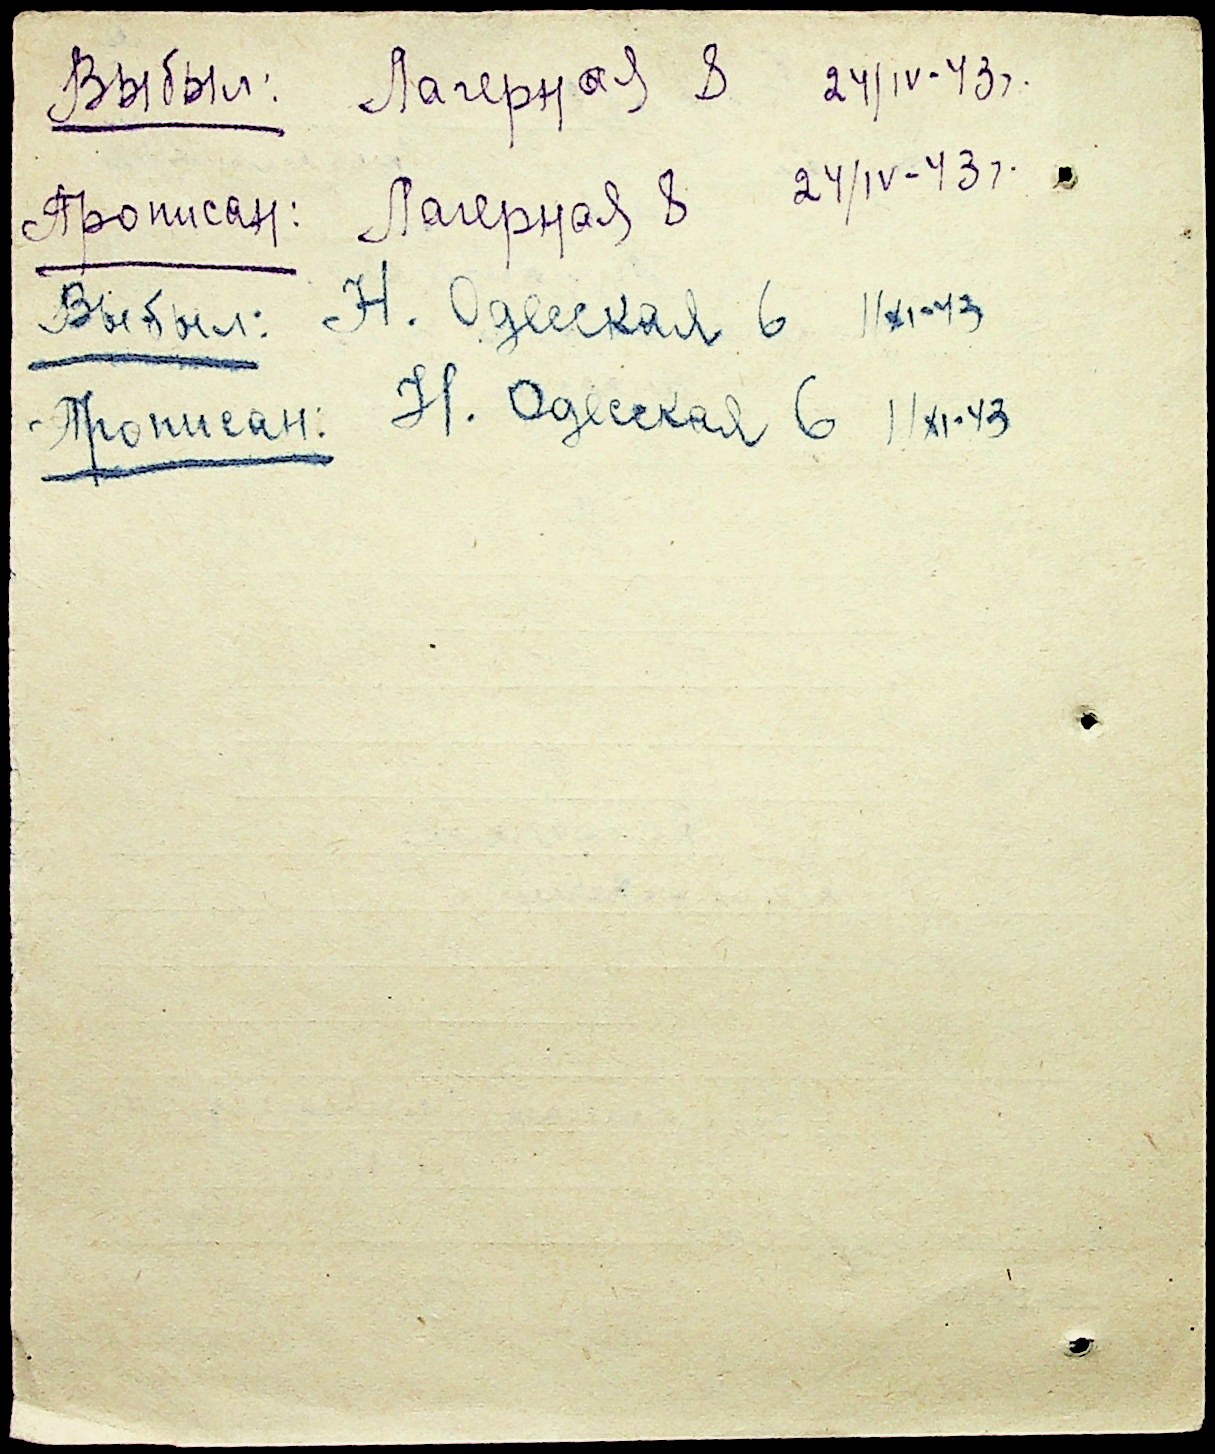 Выбыл: Лагерная 8 24/IV-43г.
Прописан: Лагерная 8 24/IV-43г.
Выбыл: Н. Одесская 6 1/XI-43
Прописан: Н. Одесская 6 1/XI-43